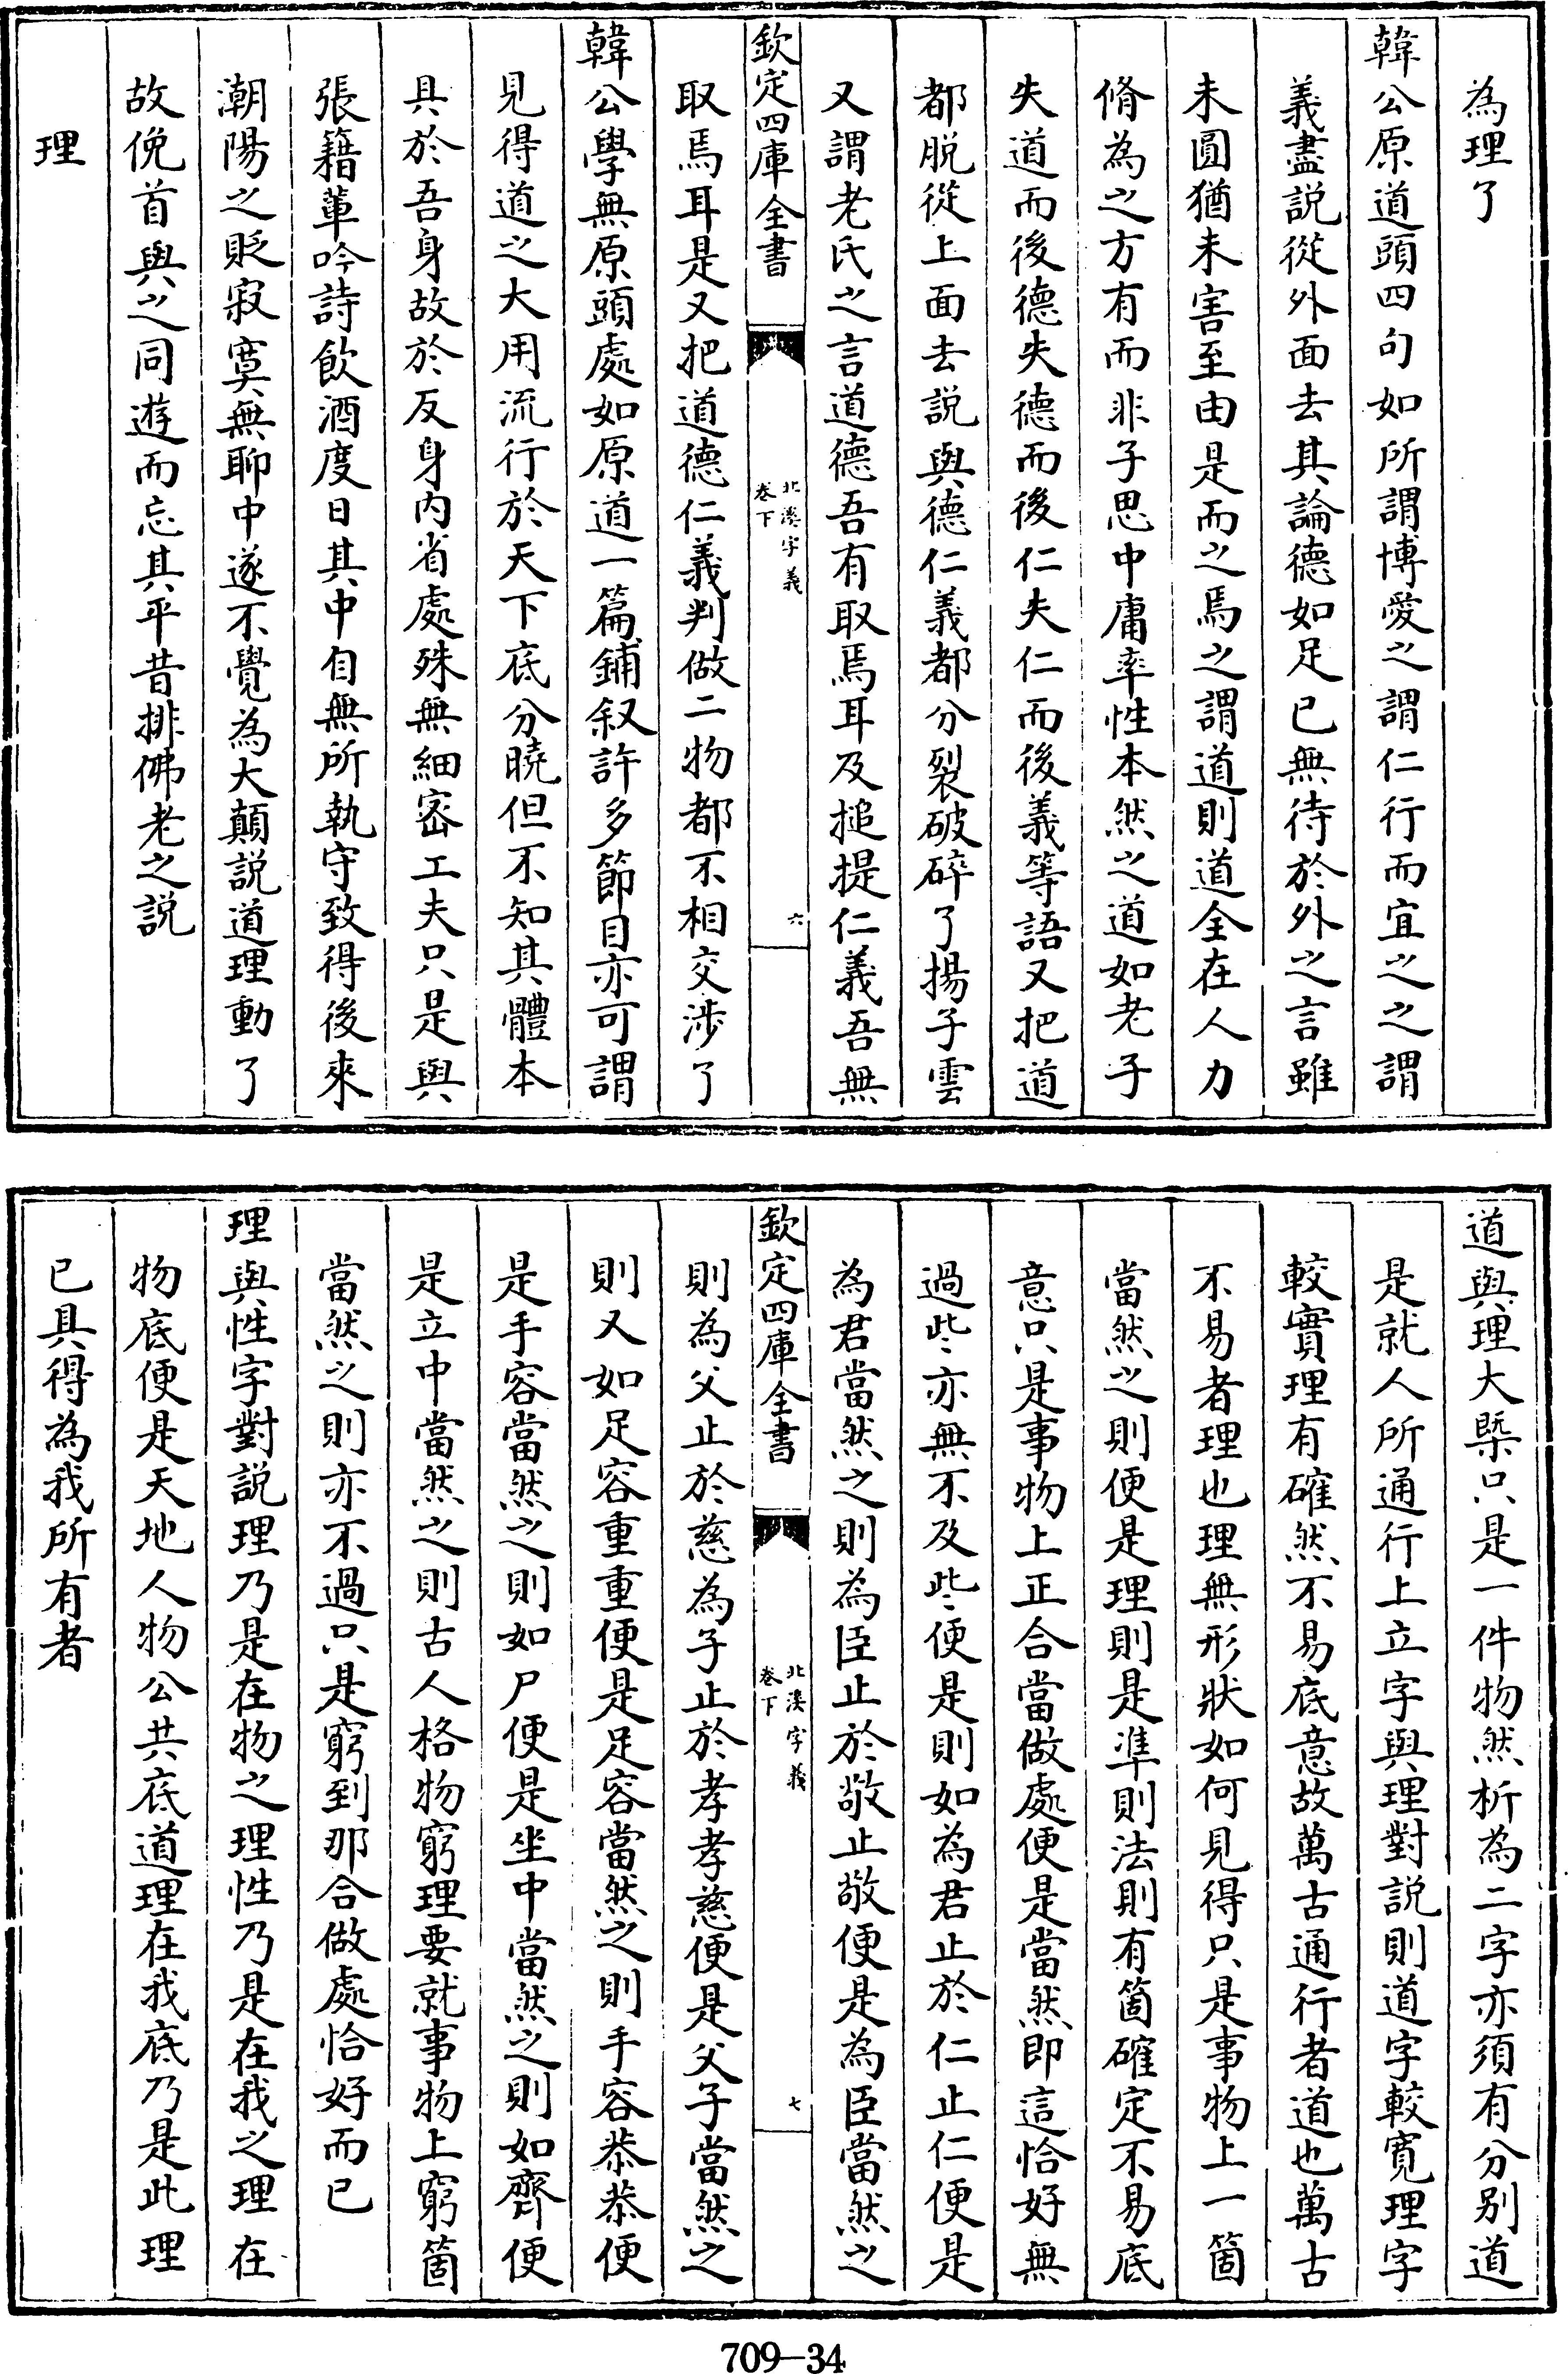 為理了
韓公原道頭四句如所謂博愛之謂仁行而宜之之謂
義盡説從外面去其論德如足已無待於外之言雖
未圓猶未害至由是而之焉之謂道則道全在人力
脩為之方有而非子思中庸率性本然之道如老子
失道而後德失德而後仁失仁而後義等語又把道
都脱從上面去説與德仁義都分裂破碎了揚子雲
又謂老氏之言道德吾有取焉耳及搥提仁義吾無
欽定四庫全書
北溪字義
卷下
六
取焉耳是又把道德仁義判做二物都不相交涉了
韓公學無原頭處如原道一篇鋪叙許多節目亦可謂
見得道之大用流行於天下底分曉但不知其體本
具於吾身故於反身内省處殊無細密工夫只是與
張籍軰吟詩飲酒度日其中自無所執守致得後來
潮陽之貶寂寞無聊中遂不覺為大顛説道理動了
故俛首與之同遊而忘其平昔排佛老之説
理
道與理大槩只是一件物然析為二字亦須有分别道
是就人所通行上立字與理對説則道字較寛理字
較實理有確然不易底意故萬古通行者道也萬古
不易者理也理無形狀如何見得只是事物上一箇
當然之則便是理則是準則法則有箇確定不易底
意只是事物上正合當做處便是當然即這恰好無
過些亦無不及些便是則如為君止於仁止仁便是
為君當然之則為臣止於敬止敬便是為臣當然之
欽定四庫全書
北溪字義
卷下
七
則為父止於慈為子止於孝孝慈便是父子當然之
則又如足容重重便是足容當然之則手容恭恭便
是手容當然之則如尸便是坐中當然之則如齊便
是立中當然之則古人格物窮理要就事物上窮箇
當然之則亦不過只是窮到那合做處恰好而已
理與性字對説理乃是在物之理性乃是在我之理在
物底便是天地人物公共底道理在我底乃是此理
已具得為我所有者
709-34